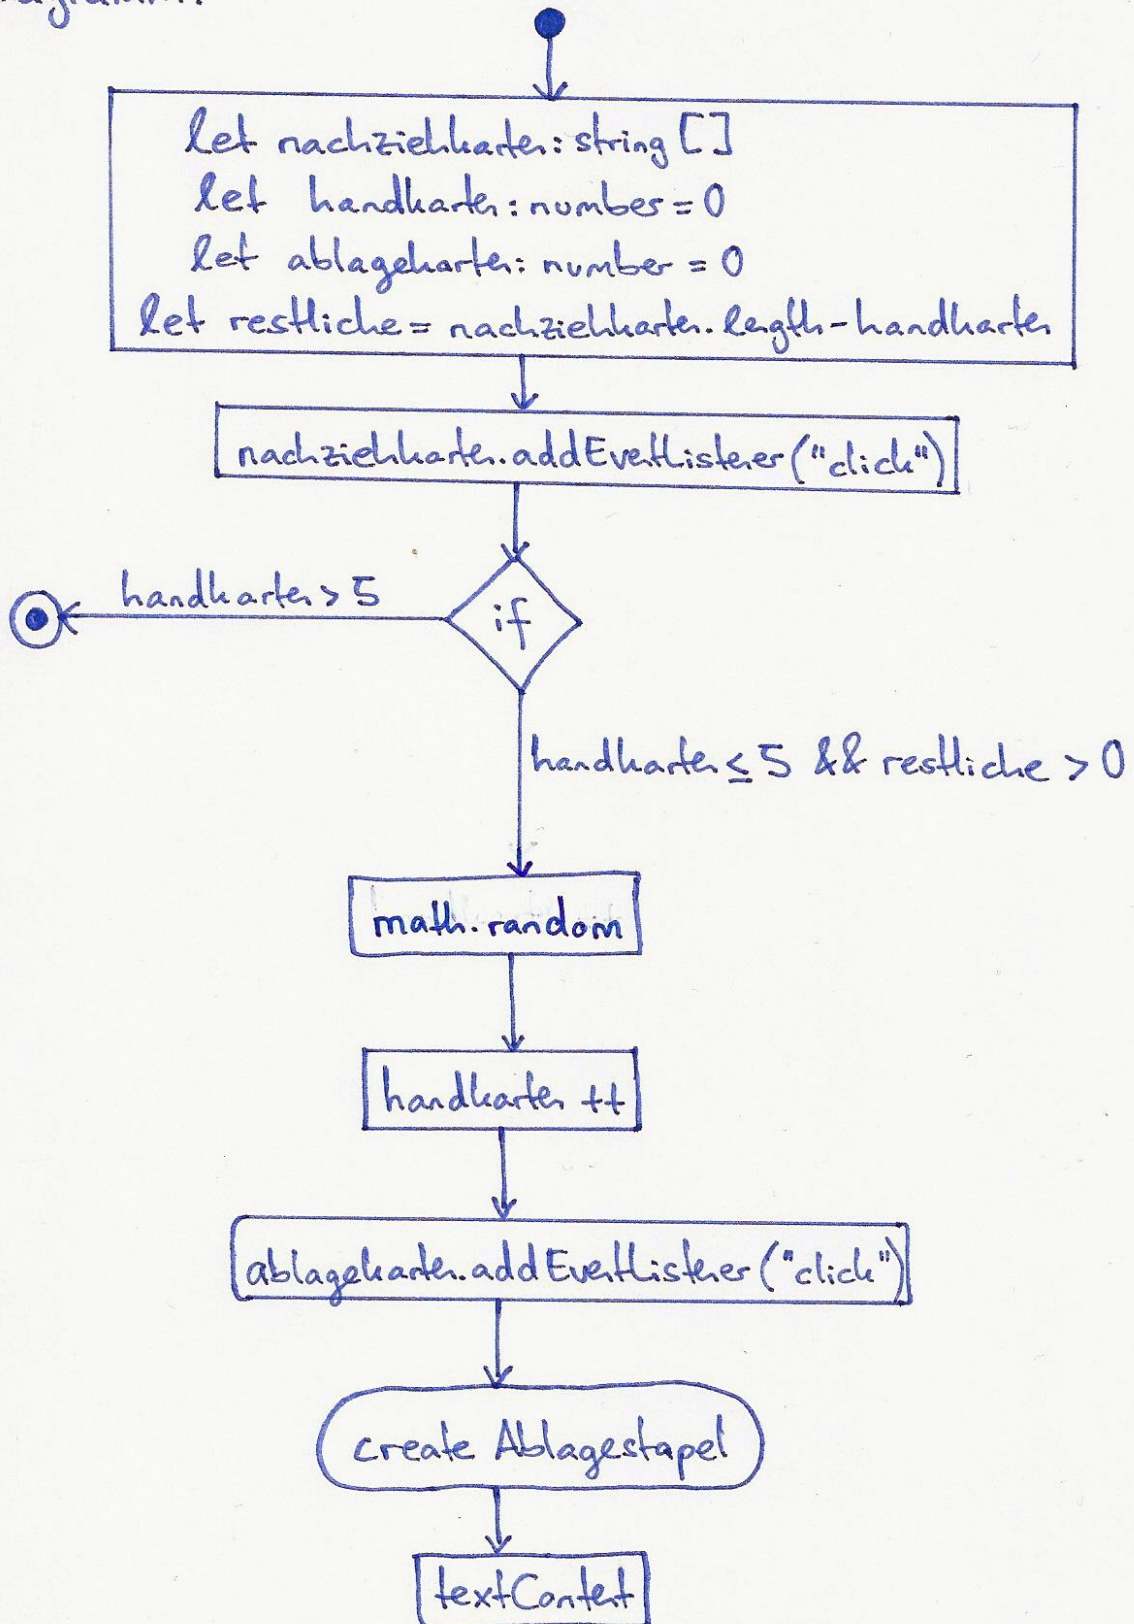 let nachziehkarten: string []
let handkarten: number = 0
let ablagekarten: number = 0
let restliche = nachziehkarten.length - handkarten
nachziehkarten.addEventListener("click")
handkarten > 5
if
handkarten ≤ 5 && restliche > 0
math.random
handkarten ++
ablagekarten.addEventListener("click")
create Ablagestapel
textContent